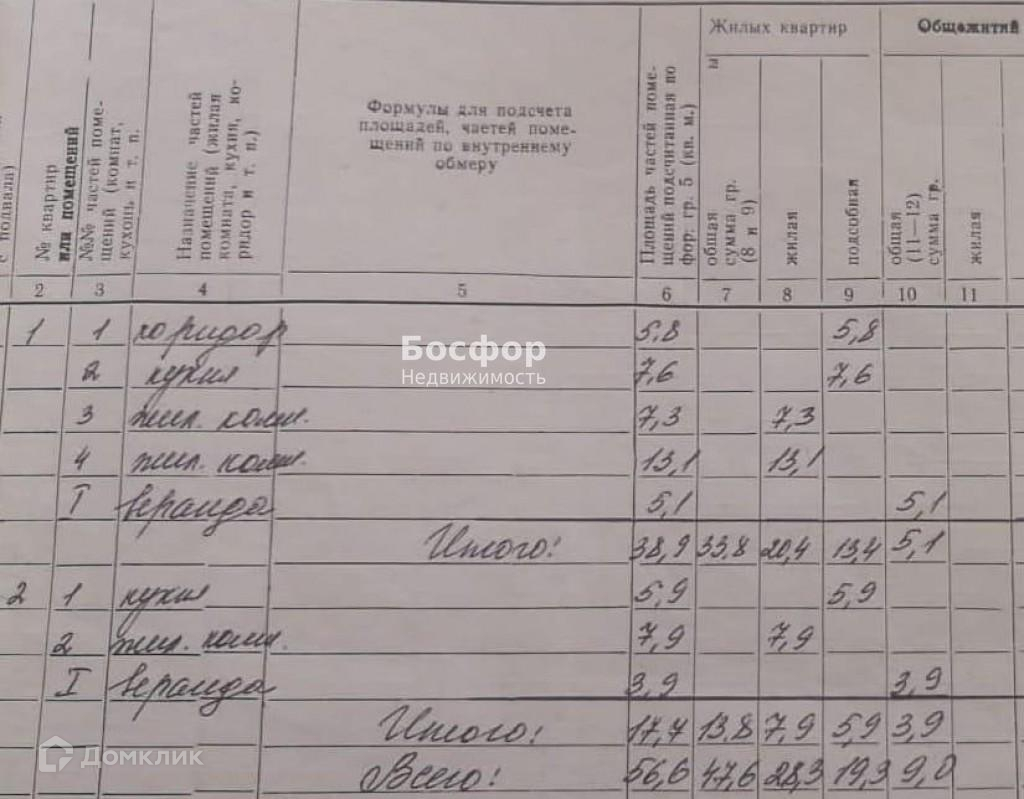 Жилых квартир Общежитий
с подвала)
№ квартир
или помещений
№№ частей поме-
щений (комнат,
кухонь и т. п.
Назначение частей
помещений (жилая
комната, кухня, ко-
ридор и т. п.)
Формулы для подсчета
площадей, частей поме-
щений по внутреннему
обмеру
Площадь частей поме-
щений подсчитанная по
фор: гр. 5 (кв. м.)
общая
сумма гр.
(8 и 9)
жилая
подсобная
общая
(11—12)
сумма гр.
жилая
2 3 4 5 6 7 8 9 10 11
1 1 коридор 5,8 5,8
Босфор
Недвижимость
2 кухня 7,6 7,6
3 жил. комн. 7,3 7,3
4 жил. комн. 13,1 13,1
I веранда 5,1 5,1
Итого: 38,9 33,8 20,4 13,4 5,1
2 1 кухня 5,9 5,9
2 жил. комн. 7,9 7,9
I веранда 3,9 3,9
Итого: 17,7 13,8 7,9 5,9 3,9
Домклик
Всего: 56,6 47,6 28,3 19,3 9,0